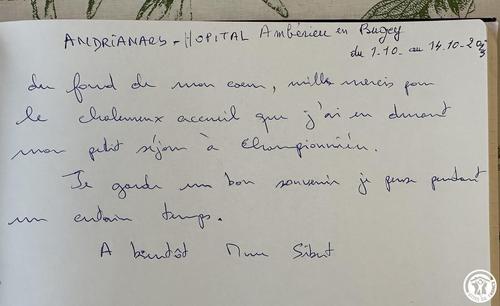 ANDRIANARS - HOPITAL Ambérieu en Bugey
du 1-10- au 14.10-2023
du fond de mon coeur, mille mercis pour
le chaleureux accueil que j'ai eu durant
mon petit séjour à Championnière.
Je garde un bon souvenir je pense pendant
un certain temps.
A bientôt Mme Sibut